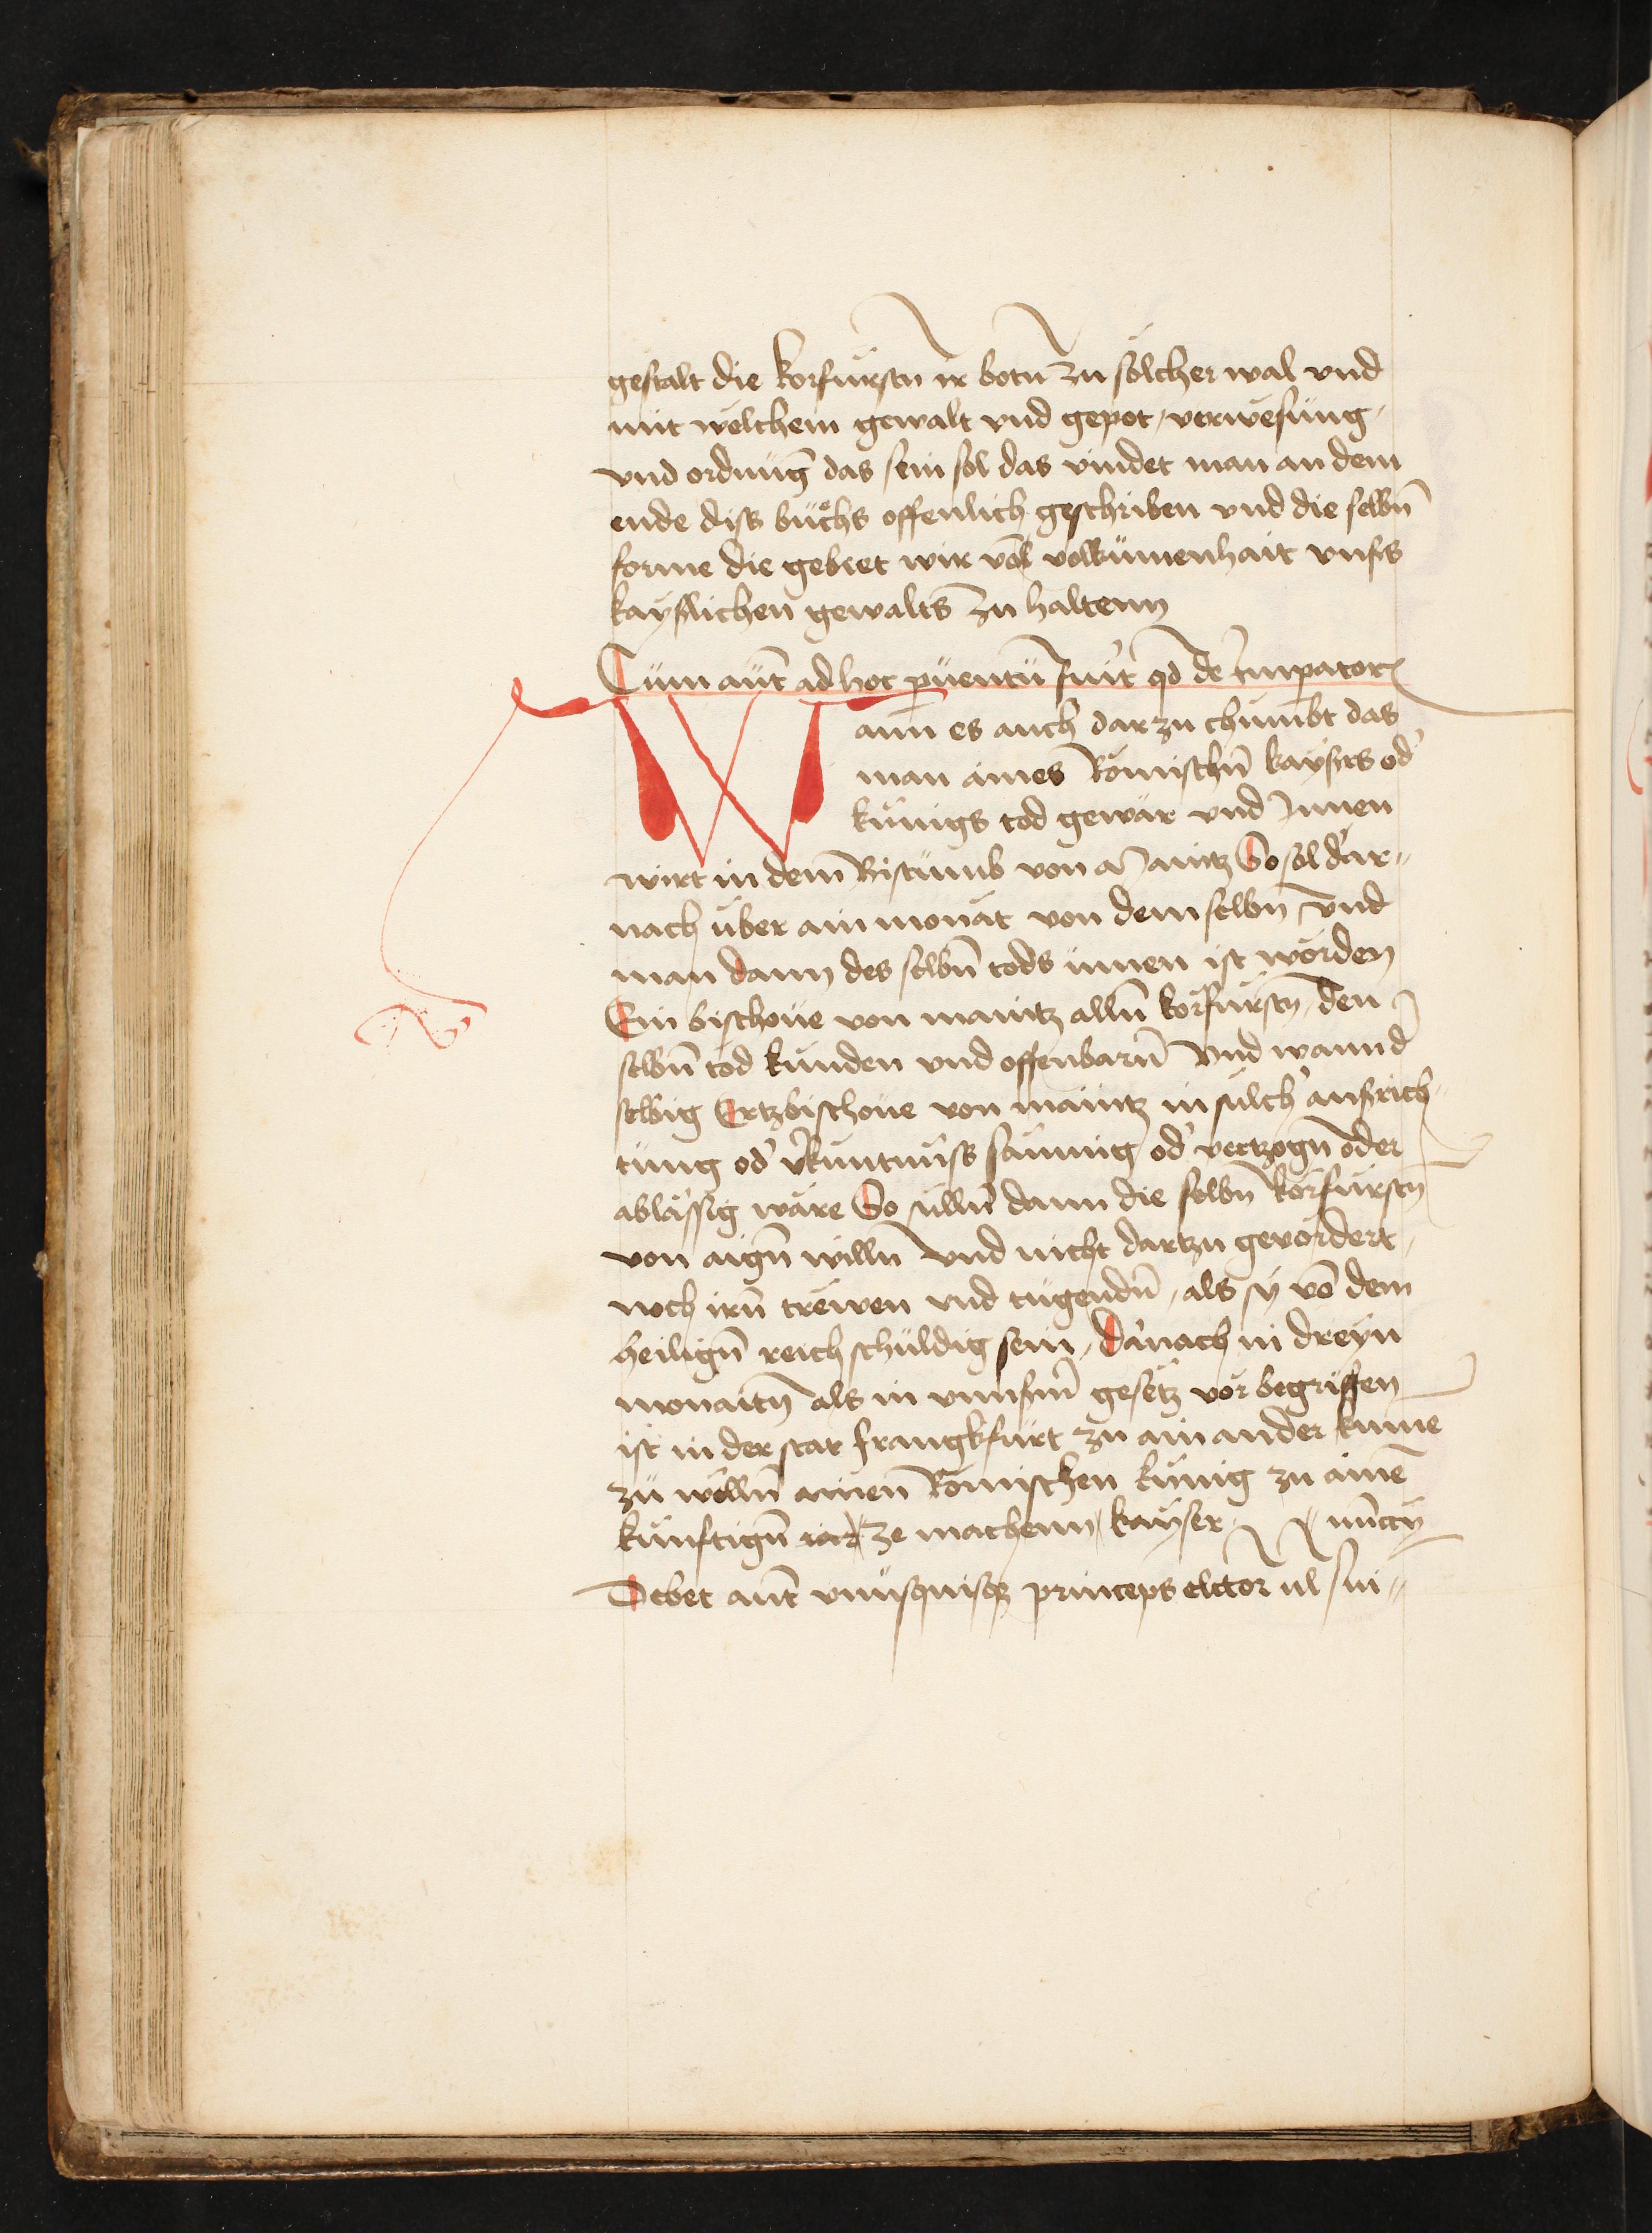 gestalt die korfursten̄ ir boten̄ zu solcher wal vnd
mit welchem gewalt vnd gepot, verwesung,
vnd ordnūg das sein sol das vindet man an dem
ende diss büchs offenlich geschriben vnd die selbn̄
forme die gebeet wir võl volkumenhait vnsers
kayslichen gewalts zu haltenn
Cum aut̄ ad hoc puentū fuīt qd de Imperator
ann es auch dar zu chumbt das
man aines Romischn̄ kaysers od'
kunigs tod gewar vnd Innen
wirt in dem Bistumb von Maintz So sol dar„
nach über ain monat von dem selbn̄ vnd
man dann des selbn̄ tods innen ist worden
Ein bischoue von maintz alln̄ korfurstn̄, den
selbn̄ tod kunden vnd offenbarn̄ Vnd wann d'
selbig Ertzbischoue von maintz in sulch' ausrich„
tung od' v'kuntnuss saumig od' vertzogn̄ oder
ablässig wäre So sulln̄ dann die selbn̄ korfurstn̄
von aign̄ willn̄ vnd nicht dartzu geuordert,
noch irn̄ trewen vnd tugendn̄, als sy võ dem
heilign̄ reich schuldig sein, darnach in dreyn
monaitn̄ als in vnnserm̄ gesetz vor begriffen
ist in der stat frangkfurt zu ain ander kume
zu welln̄ ainen̄ Romischen kunig zu aine
kunftign̄ ze machenn kayser nūccy
Debet aut̄ vnusquisq₃ princeps elctor ul sui„